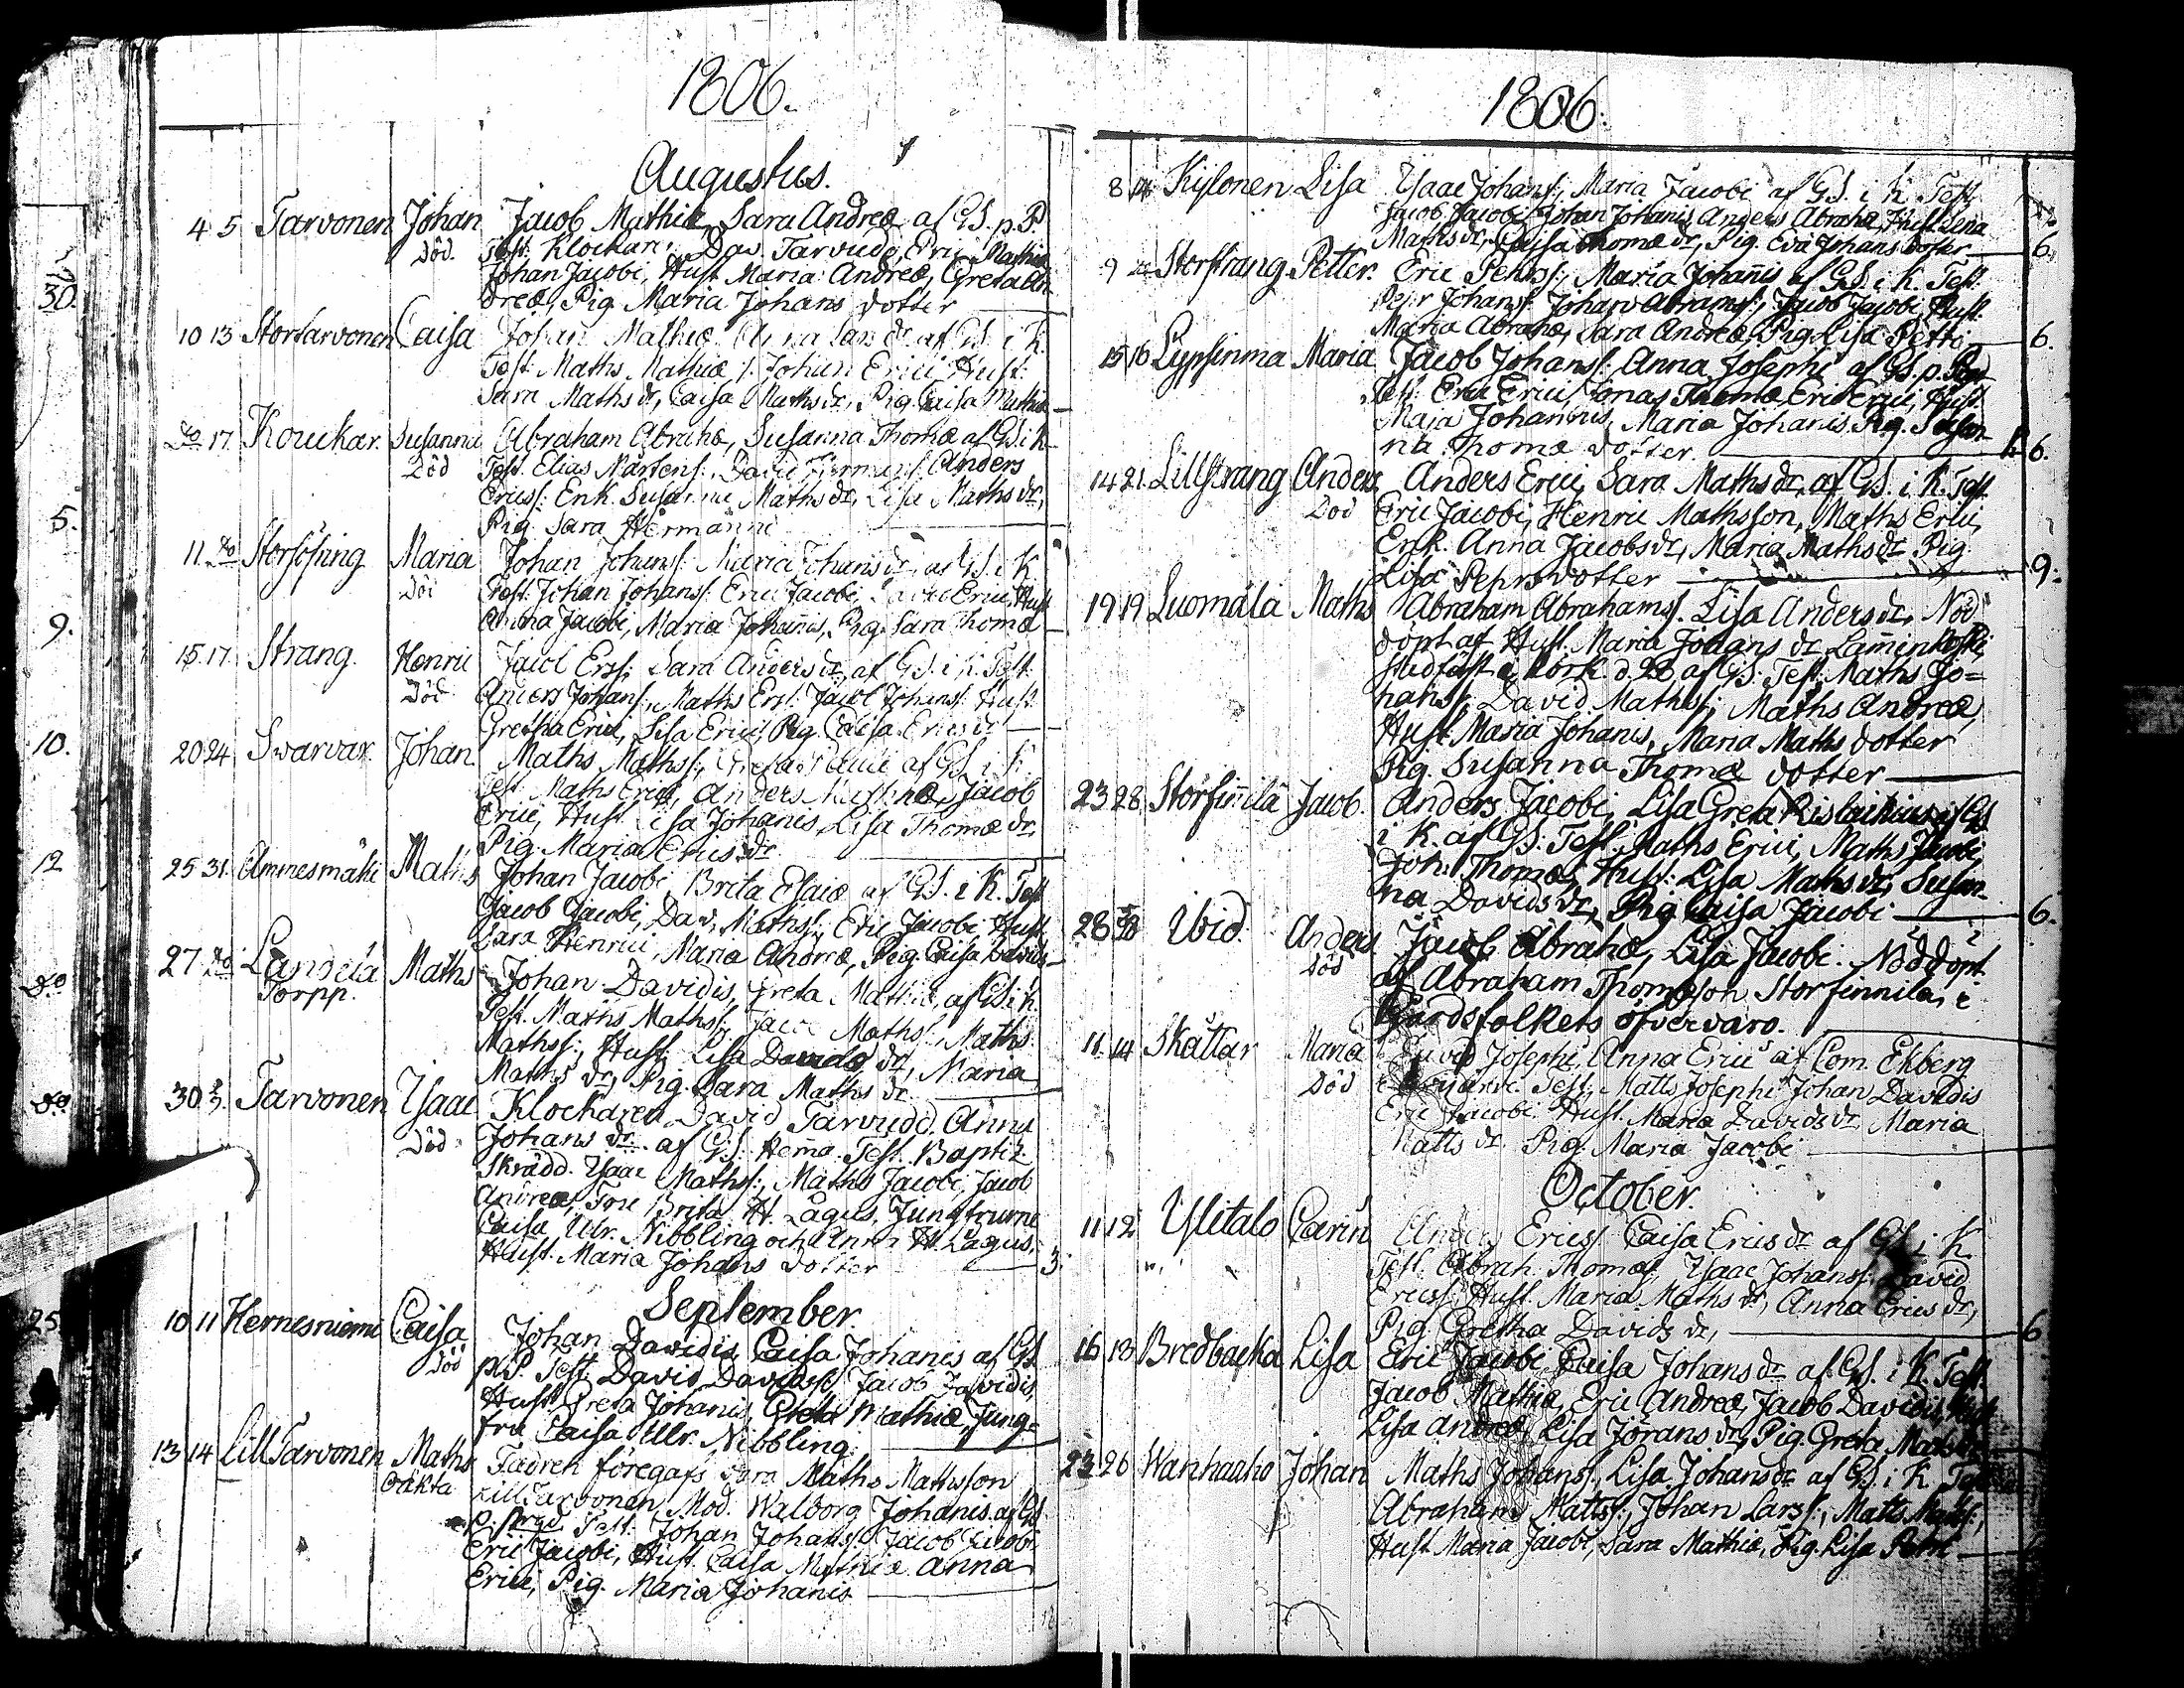 1806.
Augustus.
4 5 Tarvonen Johan Jacob Mathiæ, Sara Andreæ af GS. p. P.
Död. Test. Klockar. Dav. Tarvudd, Eric Mathiæ
Johan Jacobi, Hust. Maria Andreæ, Greta An-
dreæ, Pig. Maria Johans dotter
10 13 Stortarvonen Caisa Johan Mathiæ Anna Lars dr. af GS. i K.
Test. Maths Mathiæ, Johan Erici Hust.
Sara Maths dr, Caisa Maths dr, Pig. Caisa Mathiæ
Do 17 Kouckar. Susanna Abraham Abrahæ, Susanna Thomæ af GS. i K.
Död Test. Elias Mårtens: David Hermans: Anders
Ericss: Enk. Susanna Maths dr, Lisa Maths dr,
Pig. Sara Hermanni
11. Do Storfösing Maria Johan Johans: Maria Johans dr. af GS. i K
Död Test. Johan Johans: Eric Jacobi, Erici, Hust
Anna Jacobi, Maria Johanis, Pig. Sara Thomæ
15 17. Strang. Henric Jacob Erss: Sara Anders dr. af GS. i K. Test.
Död Anders Johans:, Maths Ers: Jacob Johans: Hust
Gretha Erici, Lisa Erici, Pig. Caisa Erics dr
20 24 Swarvar. Johan. Maths Mathss:, Greta af GS. i K.
Test. Maths Erici, Anders Mathiæ, Jacob
Erici, Hust. Lisa Johanis, Lisa Thomæ dr,
Pig. Maria Erics dr
25 31. Ammesmäki Maths Johan Jacobi, Brita Esaiæ af GS. i K. Test
Jacob Jacobi, Dav. Mathss:, Eric Jacobi Hust.
Sara Henrici, Maria Andreæ, Pig. Caisa Davids
27 Do Maths Johan Davidis, Greta Mathiæ, af GS. i K.
Torpp. Test. Maths Mathss:, Jacob Mathss: Maths
Mathss:, Hust. Lisa Davids dr, Maria
Maths dr, Pig. Sara Maths dr.
30 Tarvonen Ysaac Klockaren David Tarvudd. Anna
Död. Johans dr. af GS. Hema. Test. Baptiz.
Skrädd. Ysaac Mathss:, Maths Jacobi, Jacob
Andreæ, Fru Brita H. Lagus, Jungfrurne
Caisa Ulr. Nibbling och Anna H. Lagus,
Hust. Maria Johans dotter 3.
September
10 11 Hernesniemi Caisa Johan Davidis, Caisa Johanis af GS
död p. P. Test. David Davidss: Jacob Davidis,
Hust. Greta Johanis, Greta Mathiæ, Jung-
fru Caisa Ullr. Nibbling.
13 14 LillTarvonen Maths Fadren föregafs vara Maths Mathsson
oäkta LillTarvonen Mod. Walborg Johanis af GS
p. Test. Johan Johans: Jacob Jacobi
Eric Jacobi, Hust. Caisa Mathiæ Anna
Erici, Pig. Maria Johanis
30.
5.
9.
10.
12
Do
Do
25
1806.
8 14 Kylonen Lisa Ysaac Johans:, Maria Jacobi af GS. i K. Test.
Jacob Jacobi, Johan Johanis Anders Abrahæ, Hust. Lena
Maths dr, Caisa Thomæ dr, Pig. Eva Johans dotter 6.
9 Storstrang Petter. Eric Pehrs:, Maria Johanis af GS. i K. Test.
Pehr Johans: Johan Abrams:, Jacob Jacobi, Hust.
Maria Abrahæ, Sara Andreæ, Pig. Lisa Petri 6.
15 16 Lypsinma Maria Jacob Johans: Anna Josephi af GS. p.
Test. Eric Erici, Jonas Thomæ Eric Erici, Hust.
Maja Johannis, Maria Johanis. Pig. Susan-
na Thomæ dotter. 6.
14 21. Lillstrang Anders Anders Erici, Sara Maths dr, af GS. i K. Test.
Död Eric Jacobi, Henric Mathsson, Maths Erici,
Enk. Anna Jacobs dr, Maria Maths dr Pig.
Lisa Pehrs dotter 9.
19 19 Luomala Maths Abraham Abrahamss:. Lisa Anders dr, Nöd
döpt af Hust. Maria Johans dr Laminkoski,
stadfäst i Kyrk. d. af GS. Test. Maths Jo=
hans:, David Mathss:, Maths Andreæ,
Hust. Maria Johanis, Maria Maths dotter
Pig. Susanna Thomæ dotter
23 28 Storfinnilä Jacob. Anders Jacobi, Lisa Greta af GS
i K. af GS. Test. Maths Erici, Maths Jacobi,
Joh. Thomæ, Hust. Lisa Maths dr, Susan-
na Davids dr, Pig. Caisa Jacobi 6.
28 30 Ibid. Anders Jacob Abrahæ, Lisa Jacobi. Nöddöpt
Död af Abraham Thomsson Storfinnila, i
Gårdsfolkets öfvervaro.
11. 14 Skattar Maria David Josephi, Anna Erici af Com. Ekberg
Död Test. Matts Josephi Johan Davidis
Eric Jacobi Hust. Maria Davids dr, Maria
Matts dr Pig. Maria Jacobi
October.
11 12 Ylitalo Carin Anders Ericss: Caisa Erics dr af GS. i K.
Test. Abrah. Thomæ, Ysaac Johans: David
Ericss: Hust. Maria Maths dr, Anna Erics dr,
Pig. Gretha Davids dr, 6
16 18 Bredbacka Lisa Eric Jacobi Caisa Johans dr af GS. i K. Test.
Jacob Mathiæ, Eric Andreæ, Jacob Davidis, Hust
Lisa Andreæ, Lisa Jörans dr, Pig. Greta
23 26 Wanhaaho Johan Maths Johans:, Lisa Johans dr af GS. i K. Test
Abraham Mattss:, Johan Larss:, Matts Matss:,
Hust. Maria Jacobi, Sara Mathiæ, Pig. Lisa Petri